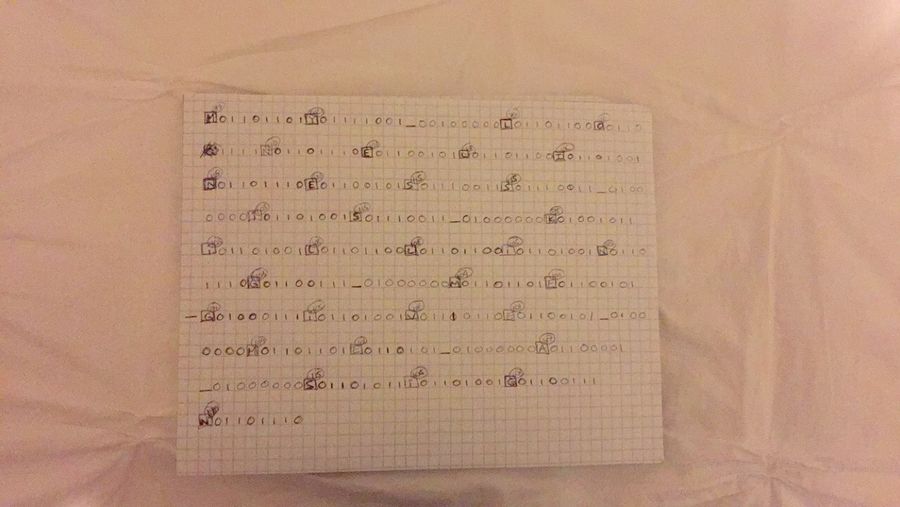 M01101101Y01111001_00100000L01101100O0110
1111N01101110E01100101L01101100I01101001
N01101110E01100101S01110011S01110011_0100
0000I01101001S01110011_01000000K01001011
I01101001L01101100L01101100I01101001N0110
1110G01100111_01000000M01101101E01100101
_G01000111I01101001V01110110E01100101_0100
0000M01101101E01100101_01000000A01100001
_01000000S01110011I01101001G01100111
N01101110